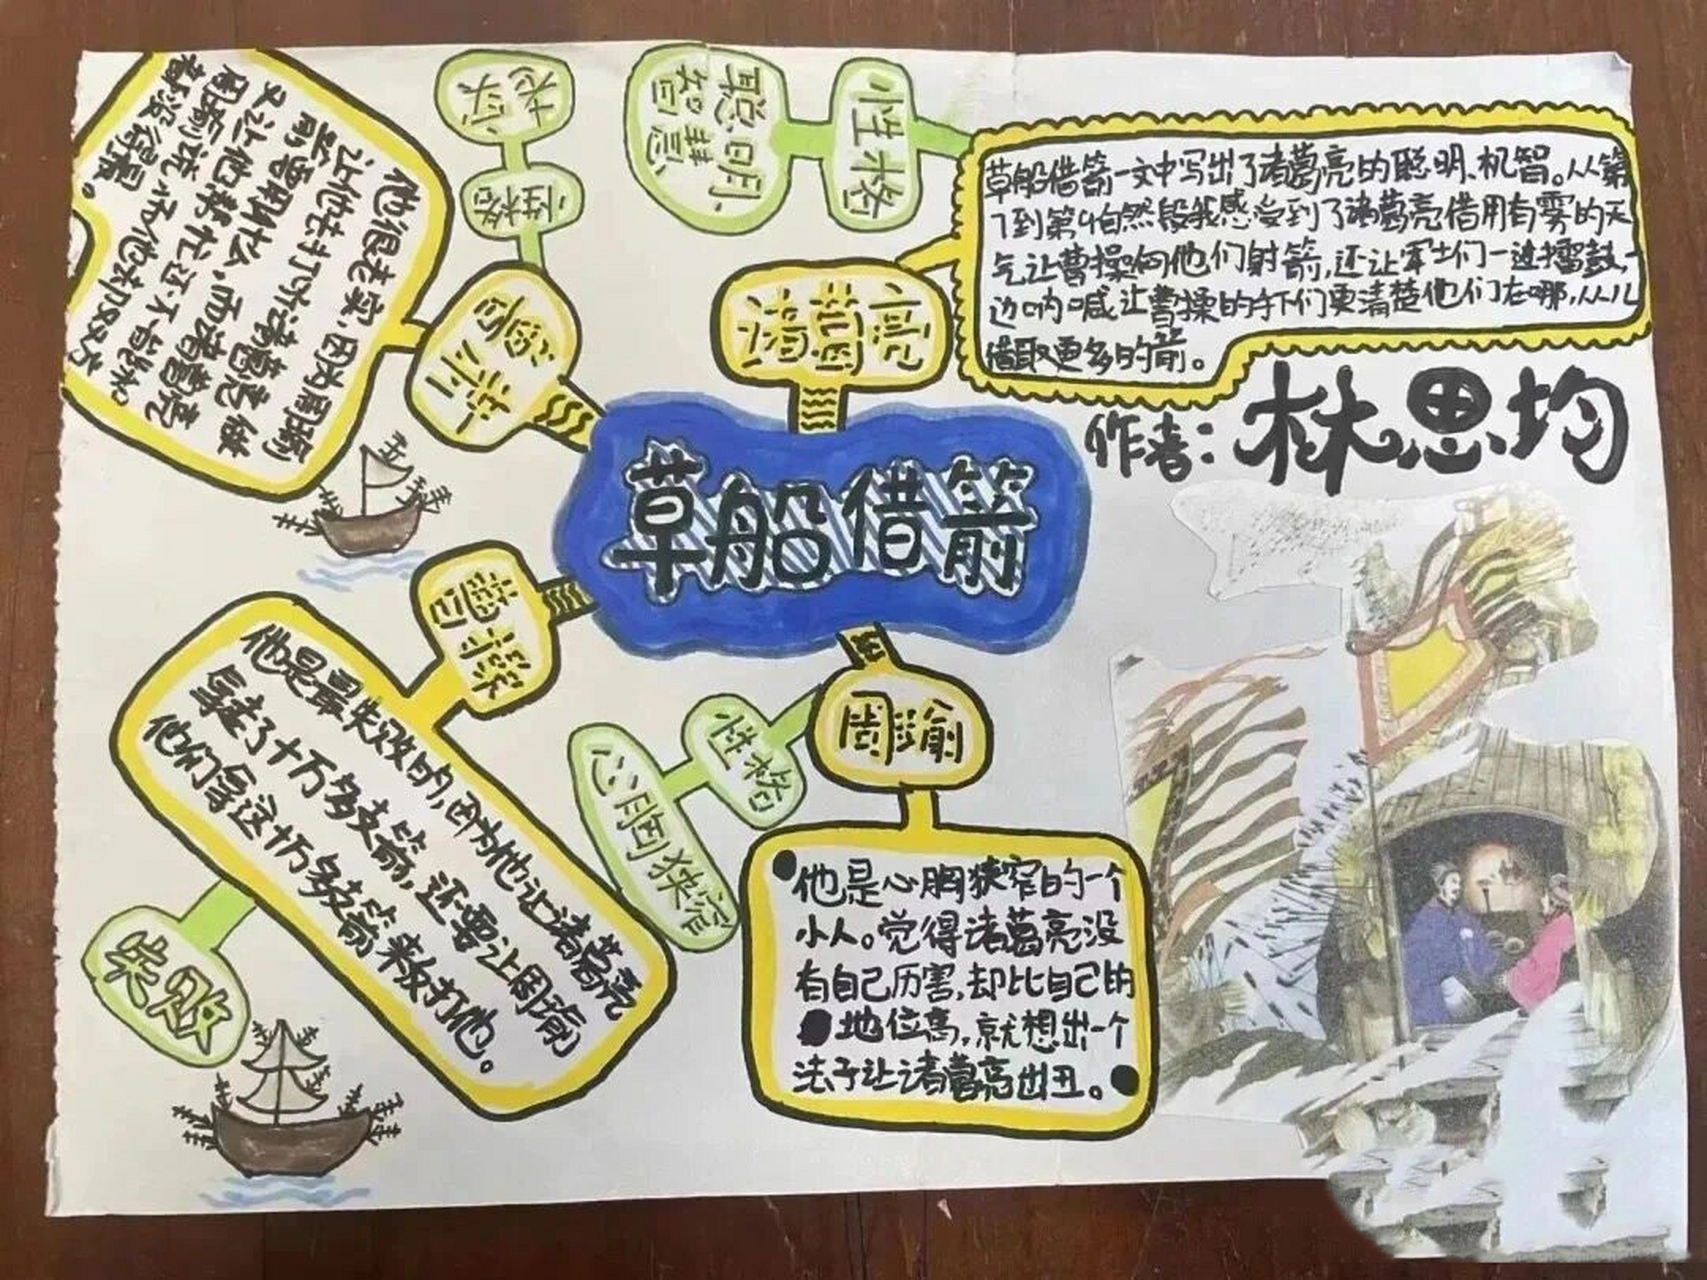 草船借箭
作者：林思均
诸葛亮
性格
聪明
智慧
草船借箭一文中写出了诸葛亮的聪明、机智。从第
7到第9自然段我感受到了诸葛亮借用有雾的天
气让曹操向他们射箭，还让军士们一边擂鼓，一
边呐喊让曹操的手下们更清楚他们在哪，从儿
借取更多的箭。
鲁肃
性格
老实
他很老实，因为周瑜
让他去打听诸葛亮做
箭要用什么，而诸葛亮
又让他帮忙还不告知
周瑜说,而他却又方
都没得罪。
曹操
他是最失败的，因为他让诸葛亮
拿走了十万多支箭，还要让周瑜
他们拿这十万多支箭来敌打他。
失败
周瑜
性格
心胸狭窄
他是心胸狭窄的一个
小人。觉得诸葛亮没
有自己历害，却比自己的
地位高，就想出一个
法子让诸葛亮出丑。